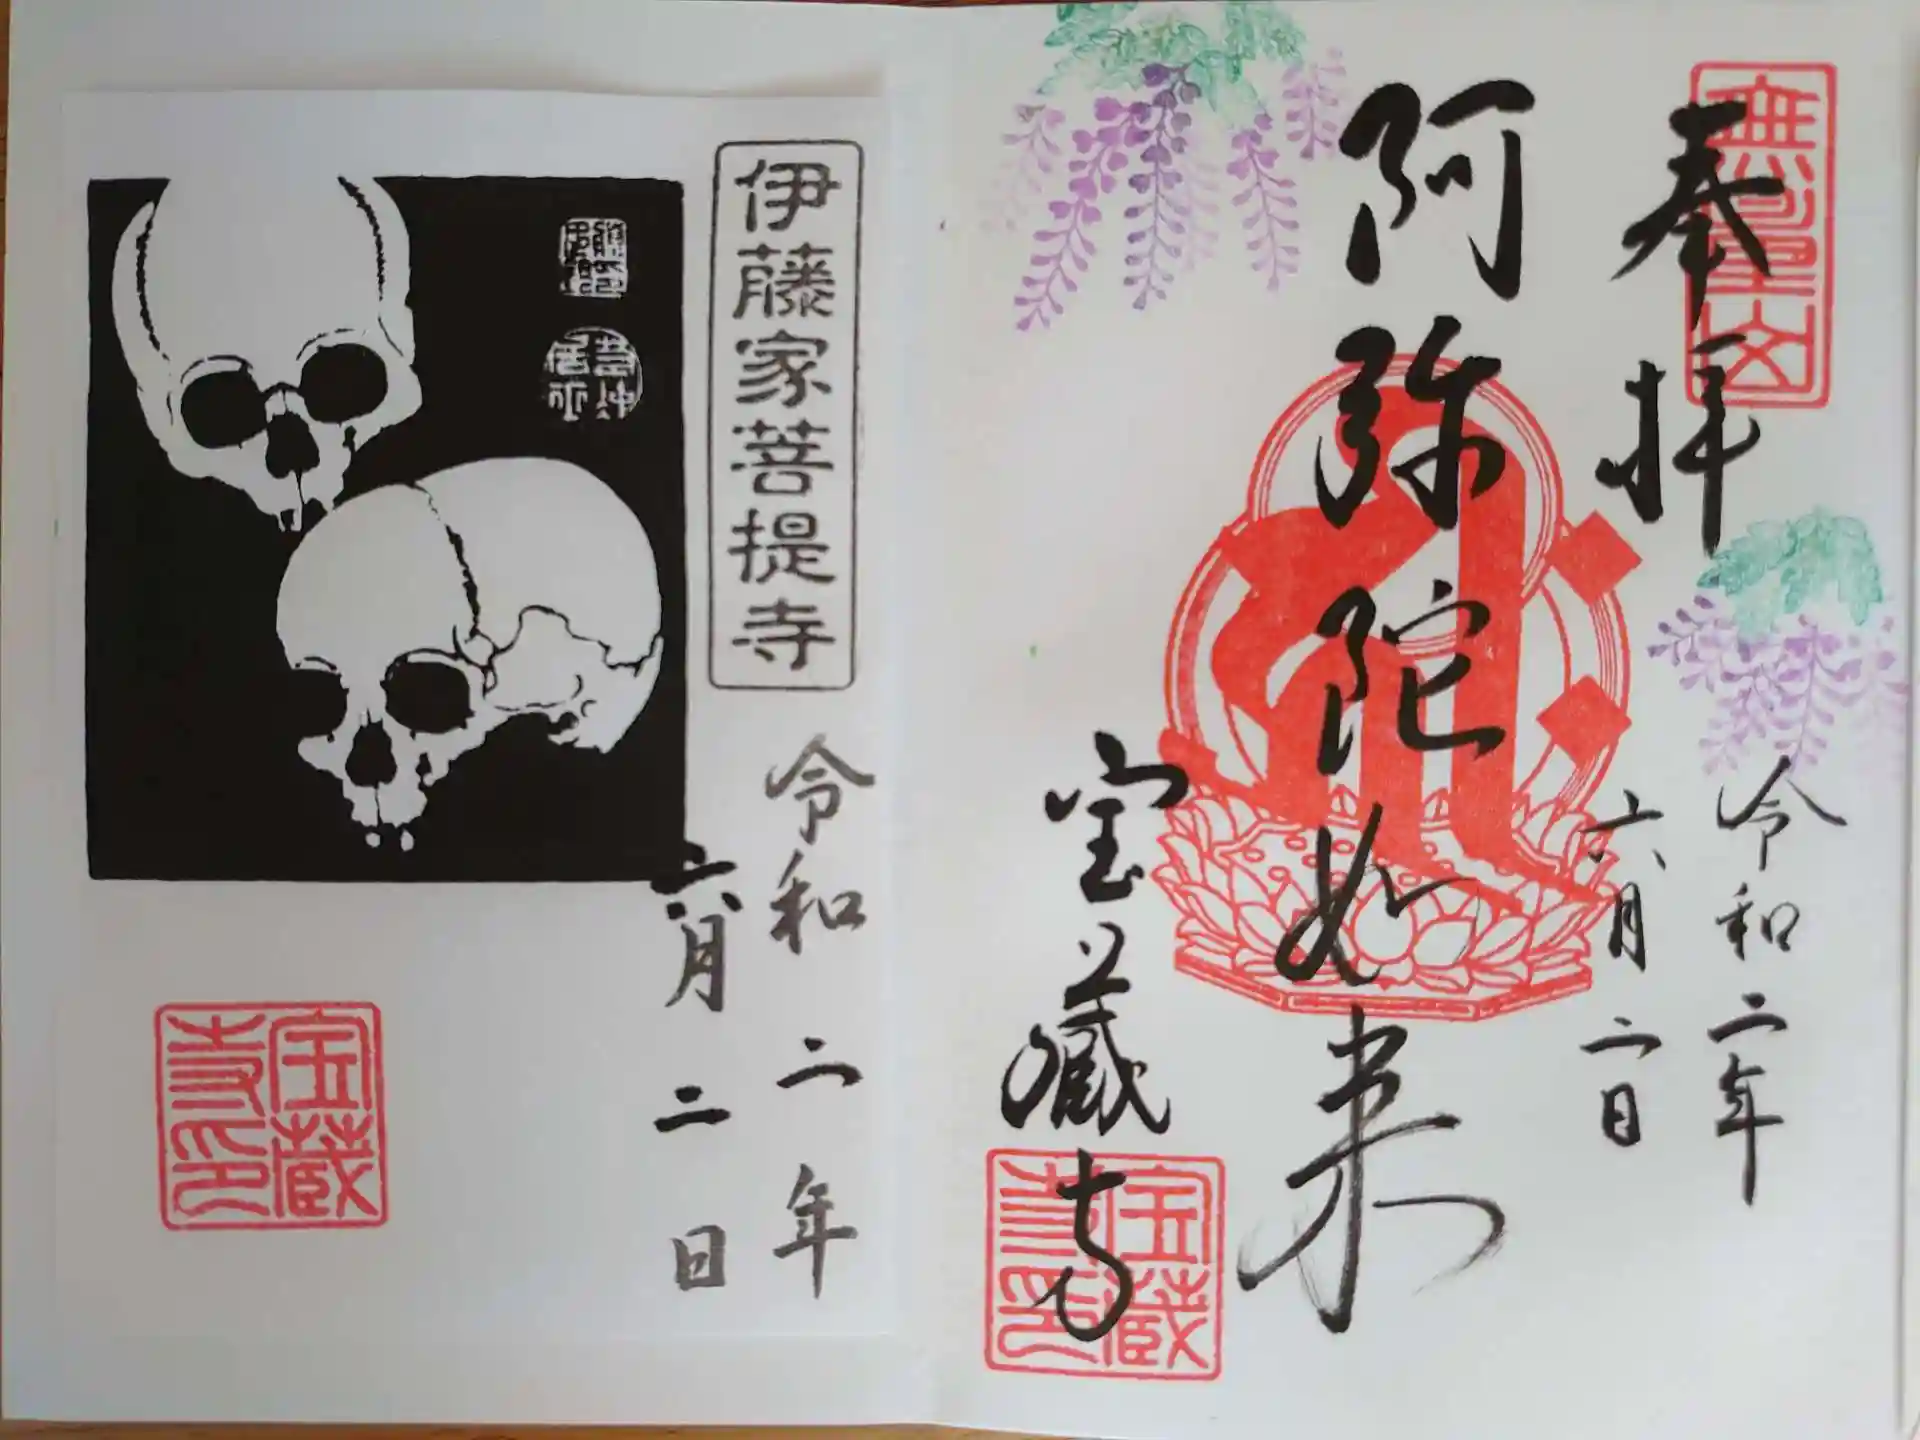 無量山
奉拝
令和二年
六月二日
阿弥陀如来
宝蔵寺
宝蔵
寺印
伊藤家菩提寺
令和二年
六月二日
宝蔵
寺印